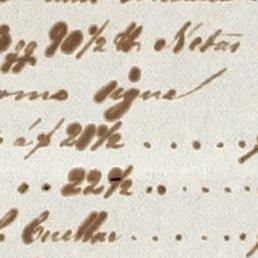 90½ lb Netas
como sigue
á $ 20½ . . . . .
. . 22½ . . . . .
Cuellar . . . . .